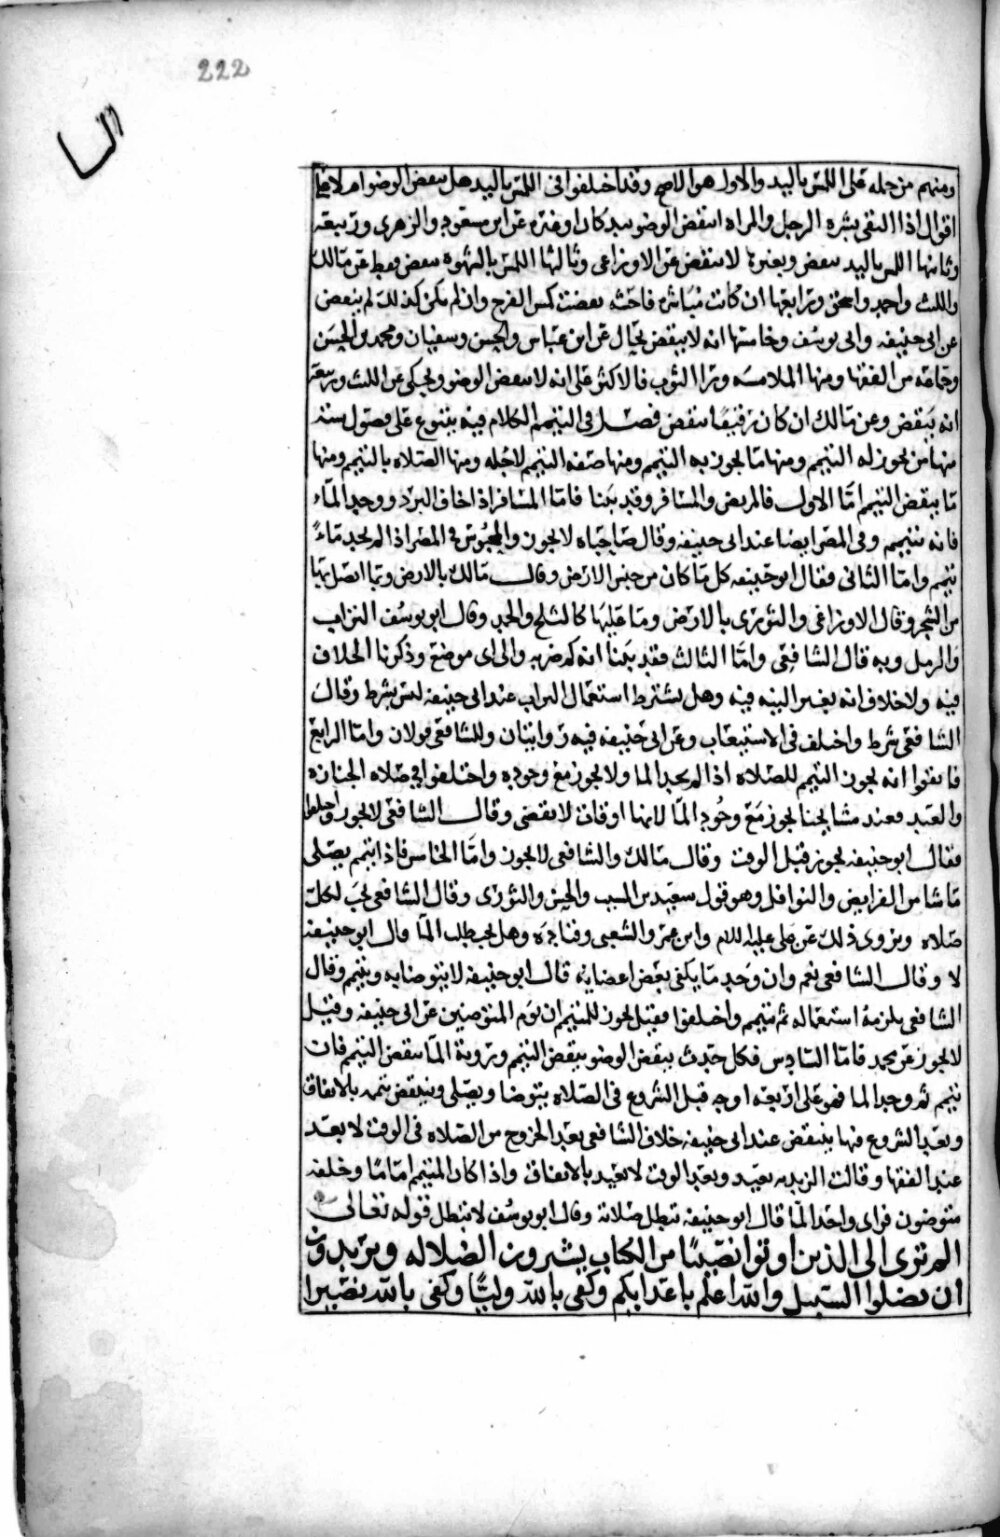 222
النسا
ومنهم من حمله على اللمس باليد والاول هو الاصح وقد اختلفوا في اللمس باليد هل ينقض الوضوء ام لا على
اقوال اذا التقى بشره الرجل والمراه انتقض الوضو بيد كان او غيره عن ابن مسعود والزهرى وربيعه
وثانيها اللمس باليد ينقض وبغيرها لا ينقض عن الاوزاعى وثالثها اللمس بالشهوه ينقض فقط عن مالك
والليث واحمد واسحق ورابعها ان كانت مباشره فاحشه نقضت كمس الفرج وان لم يكن كذلك لم ينقض
عن ابى حنيفه وابى يوسف وخامسها انه لا ينقض بحال عن ابن عباس والحسن وسفيان ومحمد بن الحسن
وجماعه من الفقها ومنها الملامسه ورا الثوب فالاكثر على انه لا ينقض الوضو ويحكى عن الليث وربيعه
انه ينقض وعن مالك ان كان رقيقا ينقض فصل في التيمم الكلام فيه يتنوع على فصول سته
منها من يجوز له التيمم ومنها ما يجوز به التيمم ومنها صفه التيمم لاجله ومنها الصلاه بالتيمم ومنها
ما ينقض التيمم اما الاول فالمريض والمسافر وقد بينا فاما المسافر اذا خاف البرد ووجد الماء
فانه يتيمم وفى المصر ايضا عند ابى حنيفه وقال صاحباه لا يجوز والمحبوس في المصر اذا لم يجد ماءً
تيمم واما الثانى فقال ابو حنيفه كل ما كان من جنس الارض وقال مالك بالارض وبما اتصل بها
من الشجر وقال الاوزاعى والثورى بالارض وما عليها كالثلج والجمد وقال ابو يوسف التراب
والرمل وبه قال الشافعى واما الثالث فقد بينا انه كم ضربه والى اى موضع وذكرنا الخلاف
فيه ولا خلاف انه يعتبر النيه فيه وهل يشترط استعمال التراب عند ابى حنيفه ليس بشرط وقال
الشافعى شرط واختلف فى الاستيعاب وعن ابى حنيفه فيه روايتان وللشافعى قولان واما الرابع
فاتفقوا انه يجوز التيمم للصلاه اذا لم يجد الما ولا يجوز مع وجوده واختلفوا في صلاه الجنازه
والعيد فعند مشايخنا يجوز مع وجود الما لانها اوقات لا تقضى وقال الشافعى لا يجوز واختلفوا
فقال ابو حنيفه يجوز قبل الوقت وقال مالك والشافعى لا يجوز واما الخامس فاذا تيمم يصلى
ما شا من الفرايض والنوافل وهو قول سعيد بن المسيب والحسن والثورى وقال الشافعى يجب لكل
صلاه ويروى ذلك عن على عليه السلام وابن عمر والشعبى وقتاده وهل يجب طلب الما قال ابو حنيفه
لا وقال الشافعى نعم وان وجد ما يكفى بعض اعضايه قال ابو حنيفه لا يتوضا به ويتيمم وقال
الشافعى يلزمه استعماله ثم يتيمم واختلفوا فقيل يجوز للمتيمم ان يؤم المتوضين عن ابى حنيفه وقيل
لا يجوز عن محمد فاما السادس فكل حدث ينقض الوضو ينقض التيمم وروية الما ينقض التيمم فان
تيمم ثم وجد الما فهو على اربعه اوجه قبل الشروع فى الصلاه يتوضا ويصلى وينتقض تيممه بالاتفاق
وبعد الشروع فيها ينتقض عند ابى حنيفه خلاف الشافعى بعد الخروج من الصلاه فى الوقت لا يعيد
عند الفقها وقالت الزيديه يعيد وبعد الوقت لا يعيد بالاتفاق واذا كان المتيمم اماما وخلفه
متوضون فراى واحد الما قال ابو حنيفه تبطل صلاته وقال ابو يوسف لا تبطل قوله تعالى
الم تر الى الذين اوتوا نصيبًا من الكتاب يشترون الضلاله ويريدون
ان تضلوا السبيل والله اعلم باعدايكم وكفى بالله وليًّا وكفى بالله نصيرا